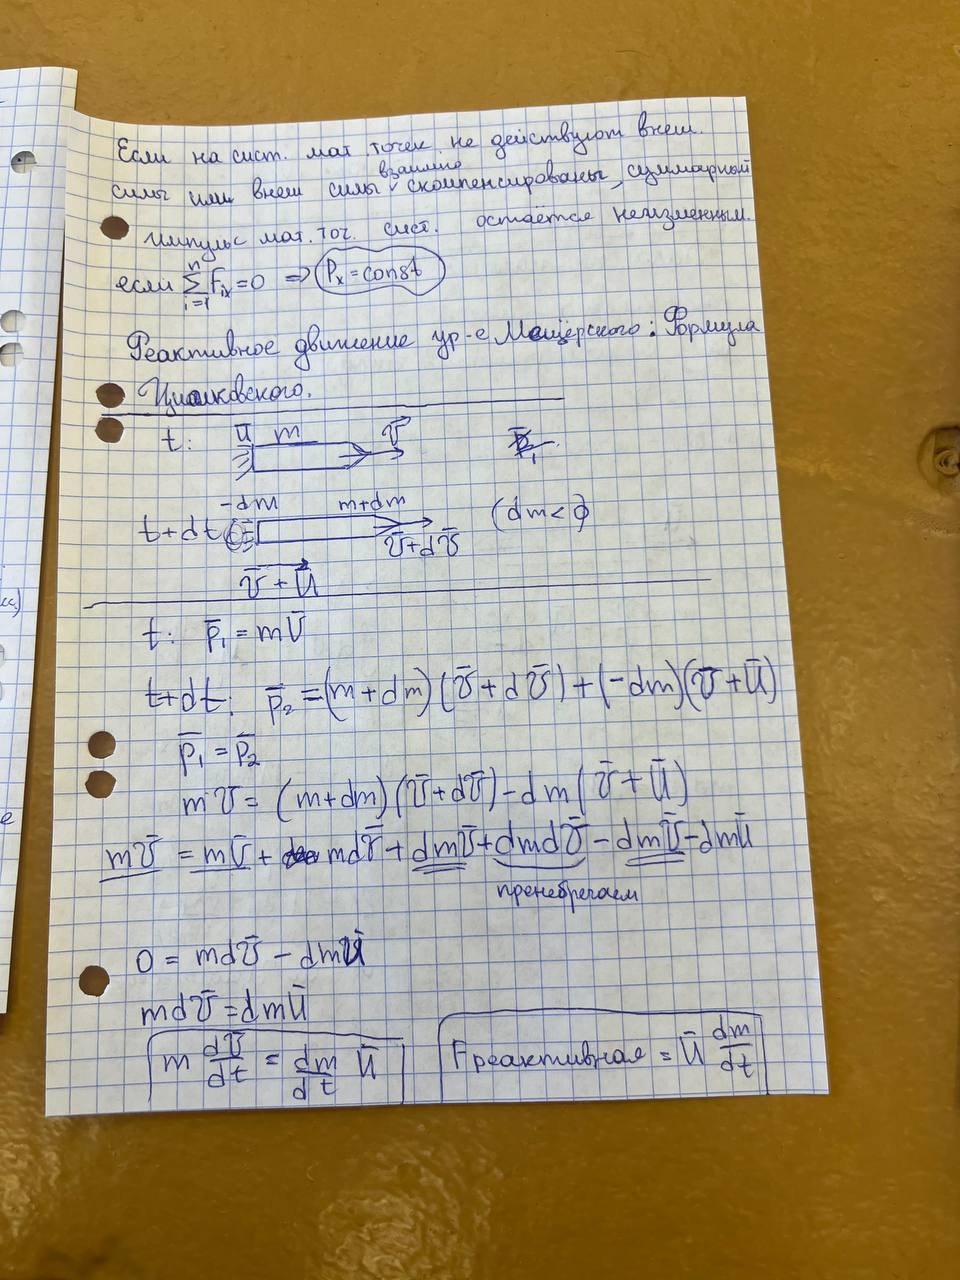 Если на сист. мат. точек не действуют внеш.
силы или внеш силы взаимно скомпенсированы, суммарный
импульс мат. точ. сист. остаётся неизменным.
если ∑ᵢ₌₁ⁿ Fᵢₓ = 0 ⇒ Pₓ = const
Реактивное движение ур-е Мещерского: Формула
Циолковского.
t: ū m v̄
-dm m+dm
t+dt (dm<0)
v̄+dv̄
v̄ + ū
t: p̄₁ = mv̄
t+dt: p̄₂ = (m+dm)(v̄+dv̄)+(-dm)(v̄+ū)
p̄₁ = p̄₂
mv̄ = (m+dm)(v̄+dv̄)-dm(v̄+ū)
mv̄ = mv̄ + mdv̄ + dmv̄ + dmdv̄ - dmv̄ - dmū
пренебрегаем
0 = mdv̄ - dmū
mdv̄ = dmū
m dv̄/dt = dm/dt ū Fреактивная = ū dm/dt